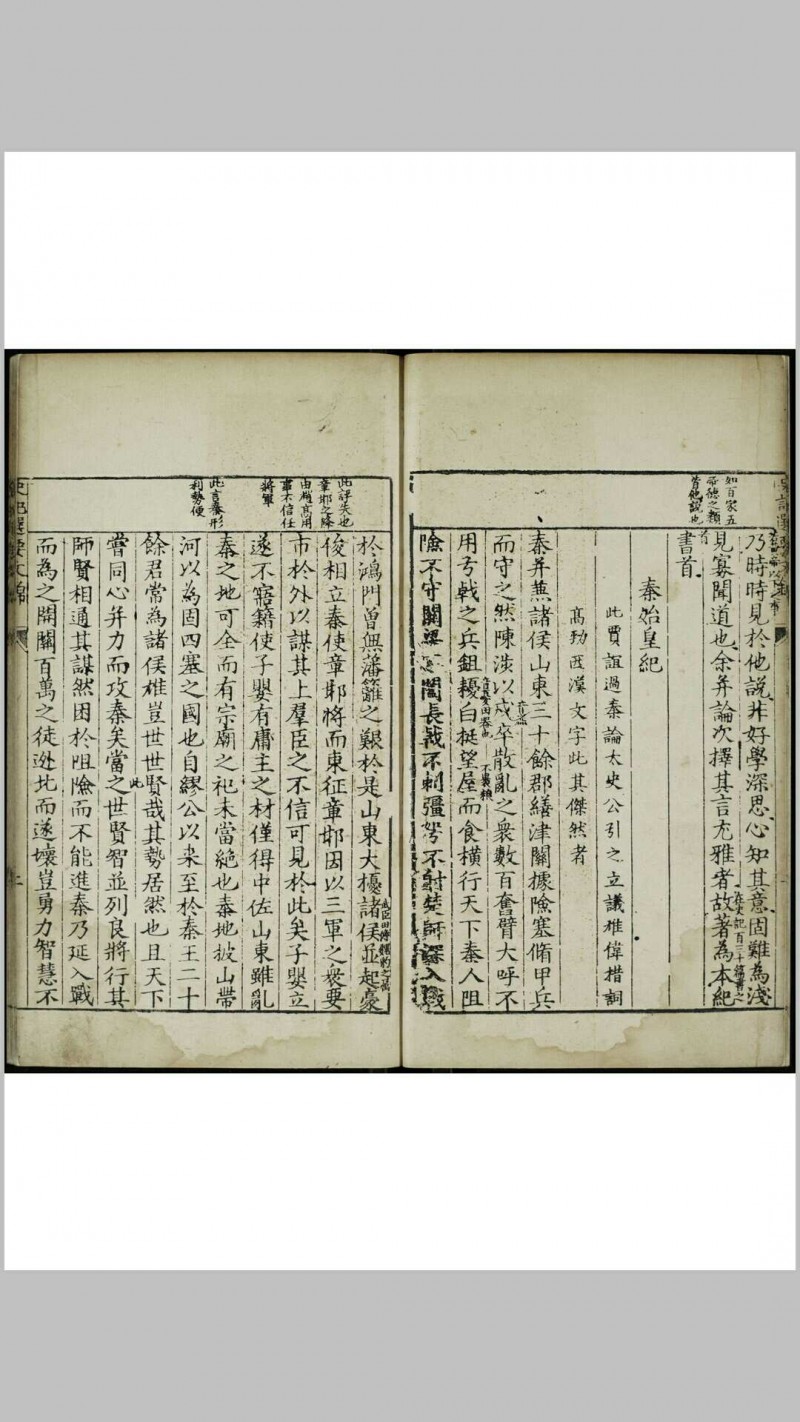 如百家五
帝德之類
皆他說也
乃時時見於他說非好學深思心知其意固難為淺
見寡聞道也余并論次擇其言尤雅者故著為本紀
書首
秦始皇紀
此賈誼過秦論太史公引之立議雄偉措詞
高勁西漢文字此其傑然者
秦并兼諸侯山東三十餘郡繕津關據險塞脩甲兵
而守之然陳涉以戍卒散亂之衆數百奮臂大呼不
用弓戟之兵鉏耰白梃望屋而食橫行天下秦人阻
險不守關梁不闔長戟不刺彊弩不射楚師深入戰
此評失也
章邯之降
由趙高用
事不信任
將軍
此言秦形
利勢便
於鴻門曾無藩籬之艱於是山東大擾諸侯並起豪
俊相立秦使章邯將而東征章邯因以三軍之衆要
市於外以謀其上羣臣之不信可見於此矣子嬰立
遂不寤藉使子嬰有庸主之材僅得中佐山東雖亂
秦之地可全而有宗廟之祀未當絕也秦地披山帶
河以為固四塞之國也自繆公以來至於秦王二十
餘君常為諸侯雄豈世世賢哉其勢居然也且天下
嘗同心并力而攻秦矣當此之世賢智並列良將行其
師賢相通其謀然困於阻險而不能進秦乃延入戰
而為之開關百萬之徒逃北而遂壞豈勇力智慧不